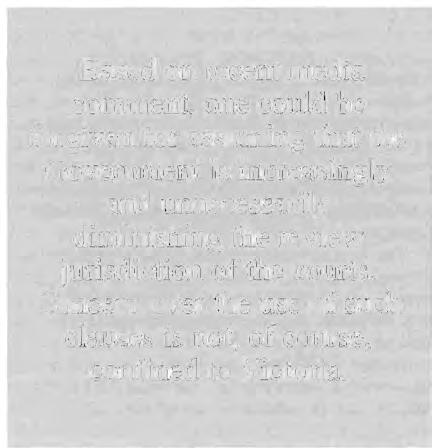 Based on recent media
comment, one could be
forgiven for assuming that the
Government is increasingly
and unnecessarily
diminishing the review
jurisdiction of the courts.
Concern over the use of such
clauses is not, of course,
confined to Victoria.